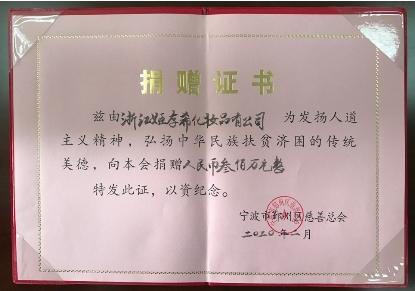 捐赠证书
兹由浙江姬存希化妆品有限公司 为发扬人道
主义精神,弘扬中华民族扶贫济困的传统
美德,向本会捐赠人民币叁佰万元整
特发此证,以资纪念。
宁波市鄞州区慈善总会
二〇二〇年二月